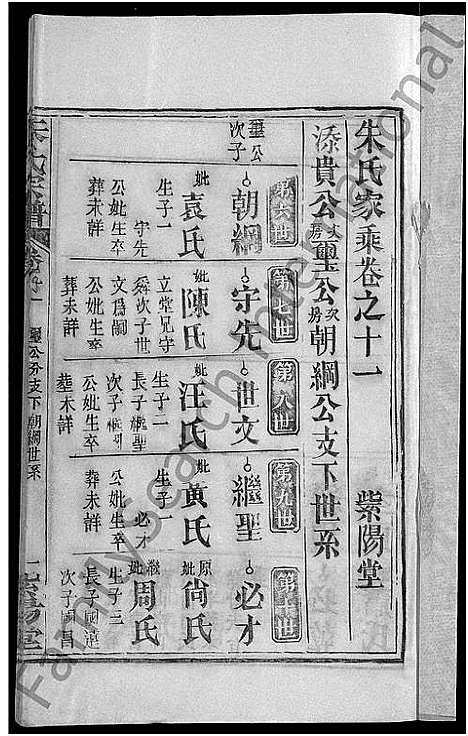 朱氏家乘卷之十一
紫陽堂
添貴公文房璽公次房朝綱公支下世系
第六世
第七世
第八世
第九世
第十世
璽公次子
朝綱
妣袁氏
生子一
守先
公妣生卒
葬未詳
守先
妣陳氏
立堂兄守
舜次子世
文爲嗣
公妣生卒
葬未詳
世文
妣汪氏
生子二
長子繼聖
次子
公妣生卒
葬未詳
繼聖
妣黄氏
生子一
必才
公妣生卒
葬未詳
必才
原妣尙氏
繼妣周氏
生子二
長子國
次子國昌
朱氏宗譜
卷十一
璽公分支下朝綱世系
一
紫陽堂
FamilySearch International